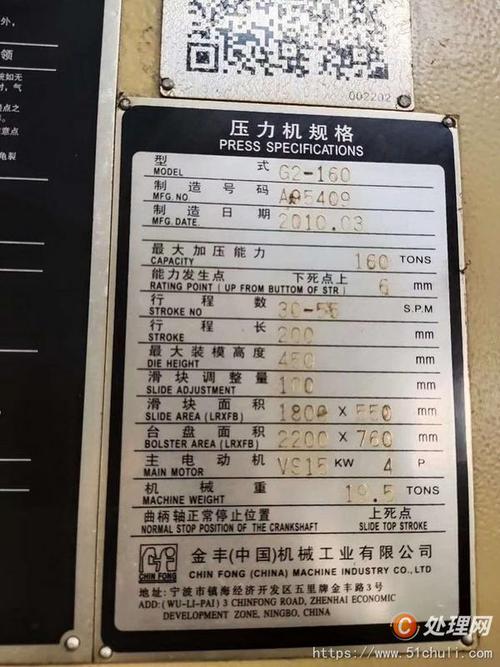 外，
领
统如无
时，气
员点之
意点
龟裂
002202
压力机规格
PRESS SPECIFICATIONS
型 式
MODEL G2-160
制造号码
MFG.NO
制造日期
MFG.DATE. 2010.03
最大加压能力
CAPACITY 160 TONS
能力发生点 下死点上
RATING POINT ( UP FROM BUTTOM OF STR ) 6 mm
行程数
STROKE NO 30-55 S.P.M
行程长
STROKE 200 mm
最大装模高度
DIE HEIGHT 450 mm
滑块调整量
SLIDE ADJUSTMENT 100 mm
滑块面积
SLIDE AREA (LRXFB) 1800 X 550 mm
台盘面积
BOLSTER AREA (LRXFB) 2200 X 760 mm
主电动机
MAIN MOTOR VS15 KW 4 P
机械重
MACHINE WEIGHT 19.5 TONS
曲柄轴正常停止位置 上死点
NORMAL STOP POSITION OF THE CRANKSHAFT SLIDE TOP STROKE
CHIN FONG
金丰(中国)机械工业有限公司
CHIN FONG (CHINA) MACHINE INDUSTRY CO.,LTD
地址: 宁波市镇海经济开发区五里牌金丰路3号
ADD: (WU-LI-PAI) 3 CHINFONG ROAD, ZHENHAI ECONOMIC
DEVELOPMENT ZONE, NINGBO, CHINA
C处理网
https://www.51chuli.com